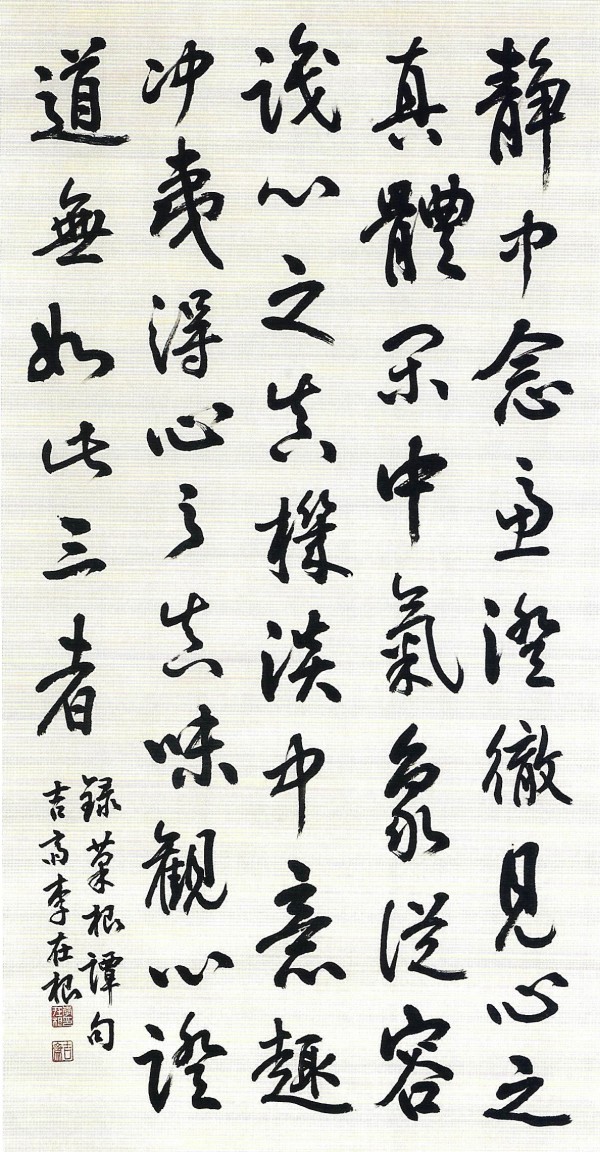 靜中念慮澄徹見心之
真體閑中氣象從容
識心之真機淡中意趣
冲夷得心之真味觀心證
道無如此三者
錄菜根譚句
吉李在根